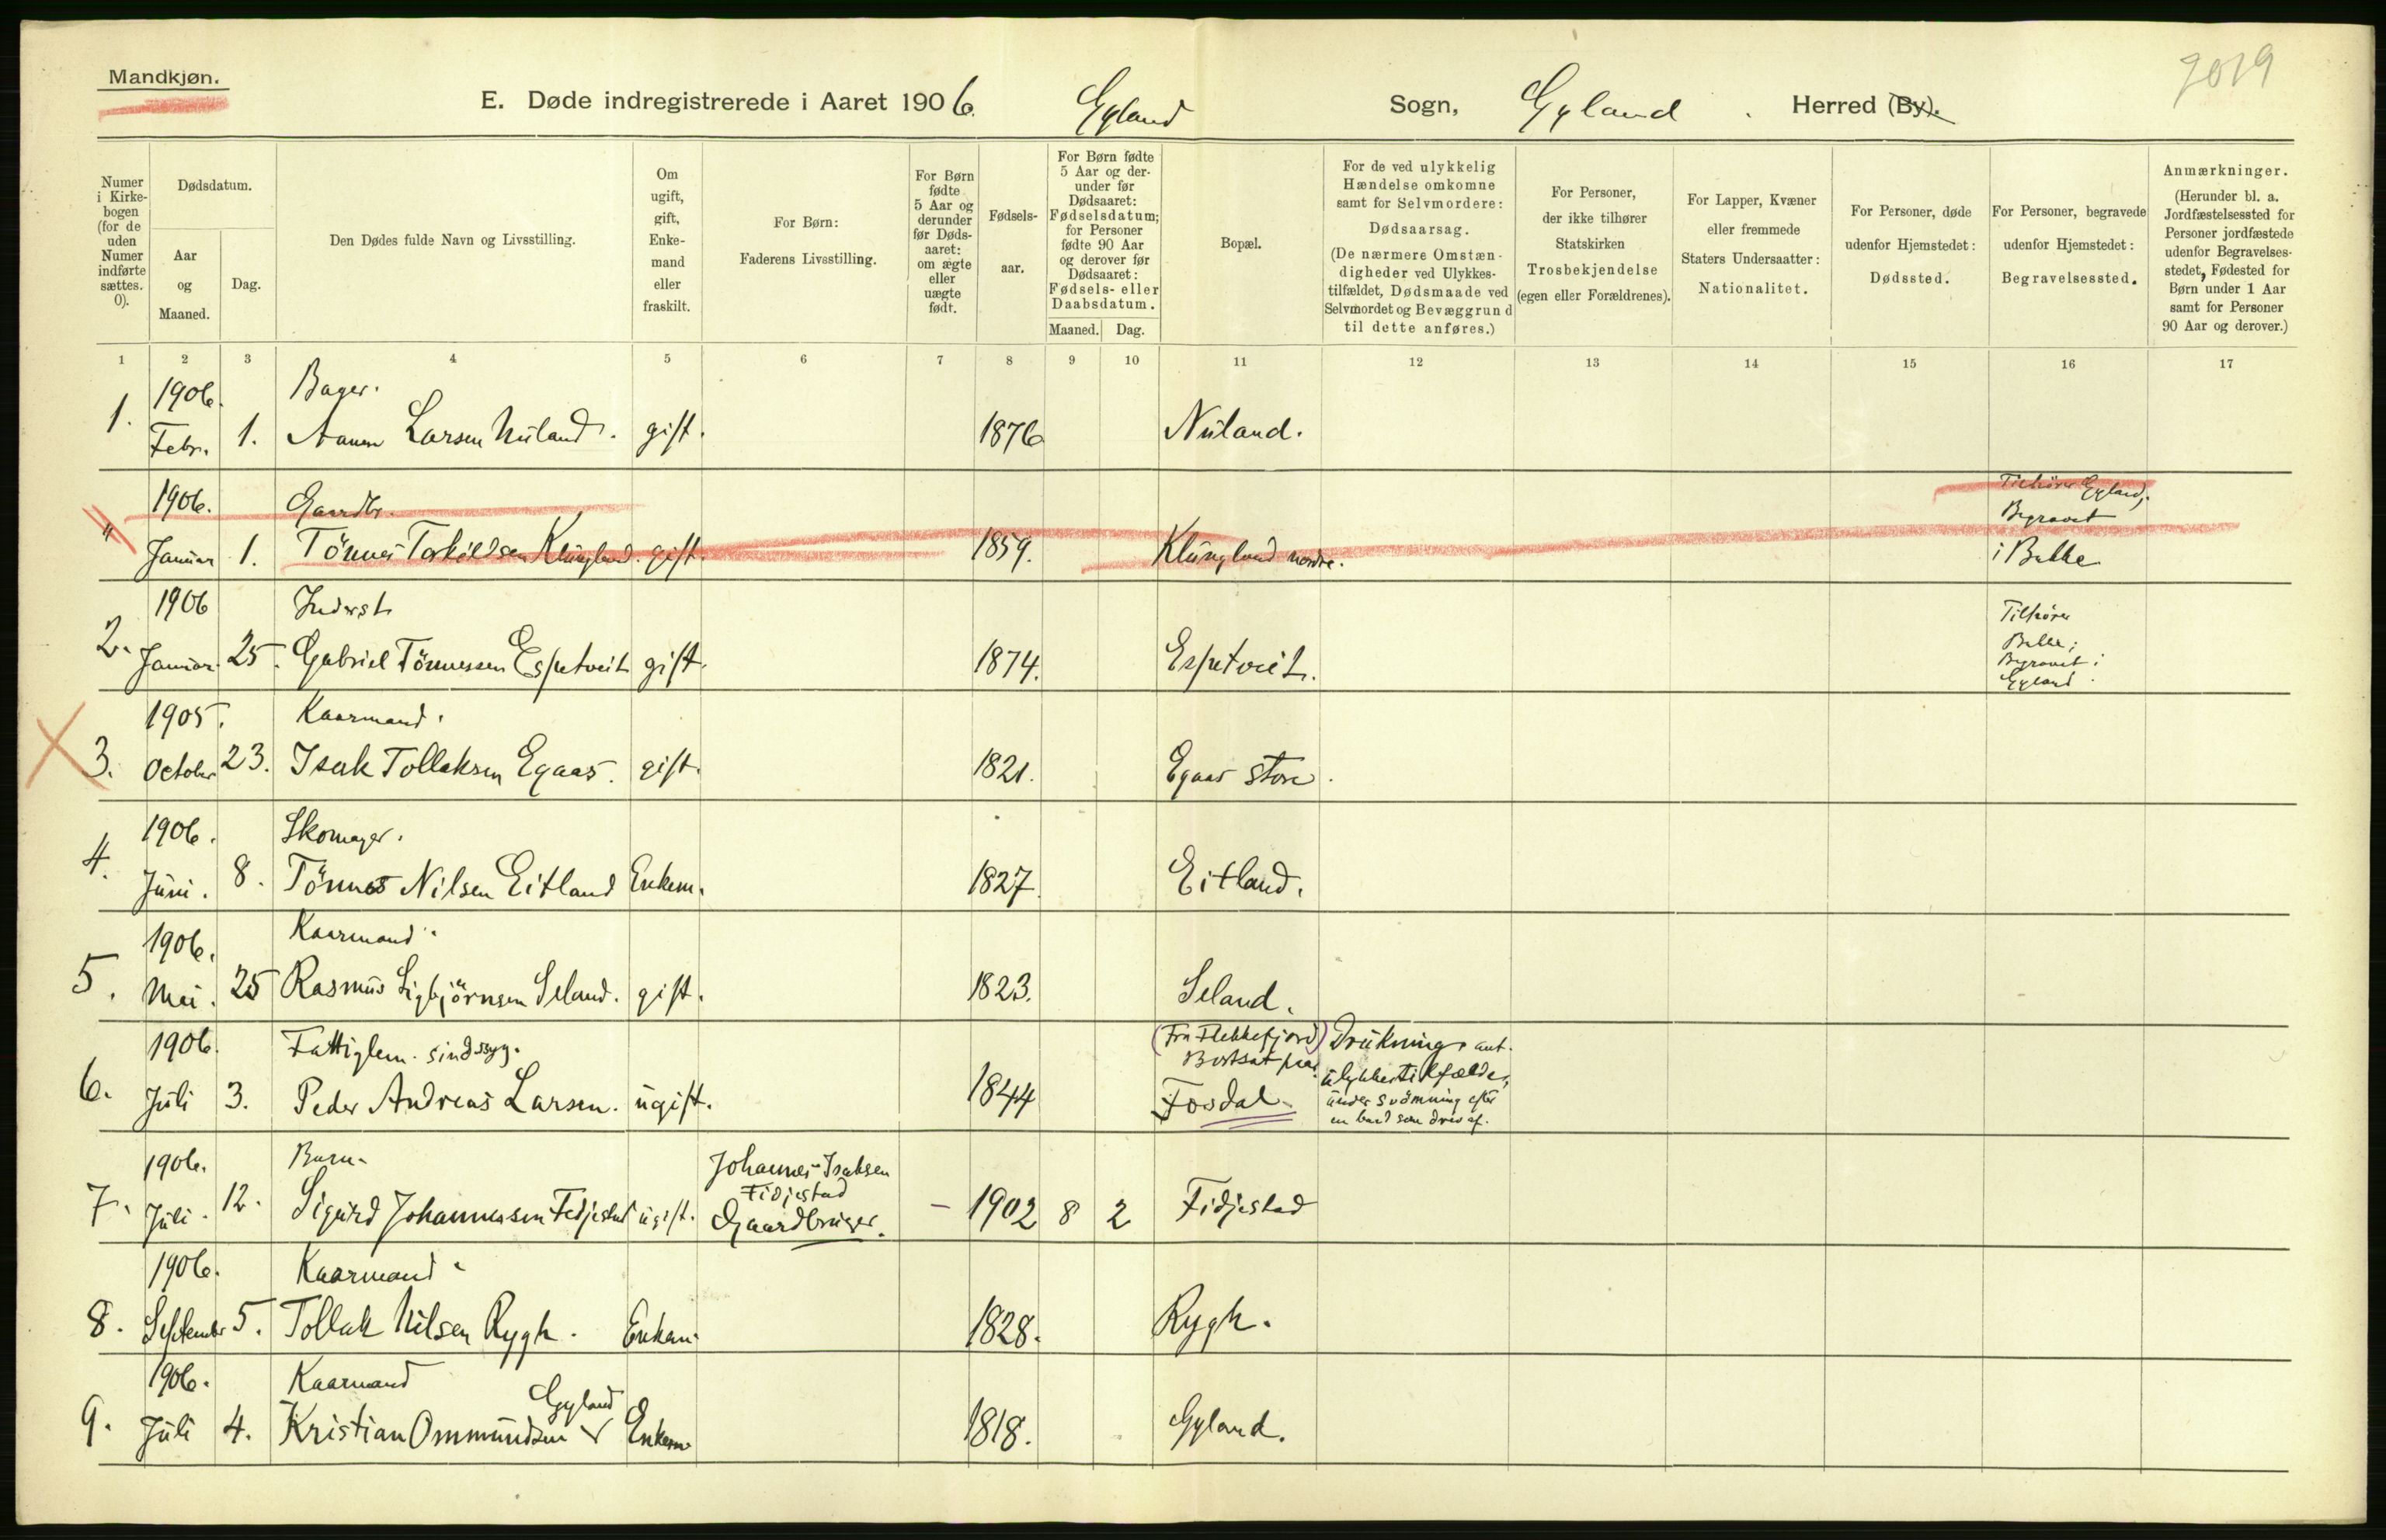 Mandkjøn.
E. Døde indregistrerede i Aaret 1906. Gyland Sogn, Gyland. Herred (By).
2019
Numer i Kirkebogen (for de uden Numer indførte sættes. 0).
Dødsdatum.
Aar og Maaned.
Dag.
Den Dødes fulde Navn og Livsstilling.
Om ugift, gift, Enkemand eller fraskilt.
For Børn: Faderens Livsstilling.
For Børn fødte 5 Aar og derunder før Dødsaaret: om ægte eller uægte født.
Fødselsaar.
For Børn fødte 5 Aar og derunder før Dødsaaret: Fødselsdatum; for Personer fødte 90 Aar og derover før Dødsaaret: Fødsels- eller Daabsdatum.
Maaned. Dag.
Bopæl.
For de ved ulykkelig Hændelse omkomne samt for Selvmordere: Dødsaarsag. (De nærmere Omstændigheder ved Ulykkestilfældet, Dødsmaade ved Selvmordet og Bevæggrund til dette anføres.)
For Personer, der ikke tilhører Statskirken Trosbekjendelse (egen eller Forældrenes).
For Lapper, Kvæner eller fremmede Staters Undersaatter: Nationalitet.
For Personer, døde udenfor Hjemstedet: Dødssted.
For Personer, begravede udenfor Hjemstedet: Begravelsessted.
Anmærkninger. (Herunder bl. a. Jordfæstelsessted for Personer jordfæstede udenfor Begravelsesstedet, Fødested for Børn under 1 Aar samt for Personer 90 Aar og derover.)
1 2 3 4 5 6 7 8 9 10 11 12 13 14 15 16 17
1906. Bager.
1. Febr. 1. Aanen Larsen Nuland. gift. 1876 Nuland.
1906. Gaardbr. Tilhører Gyland;
Begravet
" Januar 1. Tönnes Torkildsen Klungland. gift. 1859. Klungland nordre. i Bakke
1906 Inderst Tilhører
2. Januar 25. Gabriel Tönnessen Espetveit gift. 1874. Espetveit. Bakke;
Begravet i
Gyland.
1905. Kaarmand.
3. October 23. Isak Tollaksen Egaas. gift. 1821. Egaas store.
1906. Skomager.
4. Juni. 8. Tönnes Nilsen Eitland Enkem. 1827. Eitland.
1906. Kaarmand.
5. Mai. 25 Rasmus Sigbjörnsen Seland. gift. 1823. Seland.
1906. Fattiglem. sindssyg. (Fra Flekkefjord) Drukning, ant.
Bortsat paa ulykkestilfælde,
6. Juli 3. Peder Andreas Larsen. ugift. 1844 Fosdal under svömning efter
en baad som drev af.
1906. Barn. Johannes Isaksen
Fidjestad
7. Juli. 12. Sigurd Johannessen Fidjestad ugift. Gaardbruger. - 1902 8 2 Fidjestad
1906. Kaarmand.
8. September 5. Tollak Nilsen Rygh. Enkem. 1828. Rygh.
1906. Kaarmand
Gyland
9. Juli 4. Kristian Ommundsen Enkem 1818. Gyland.